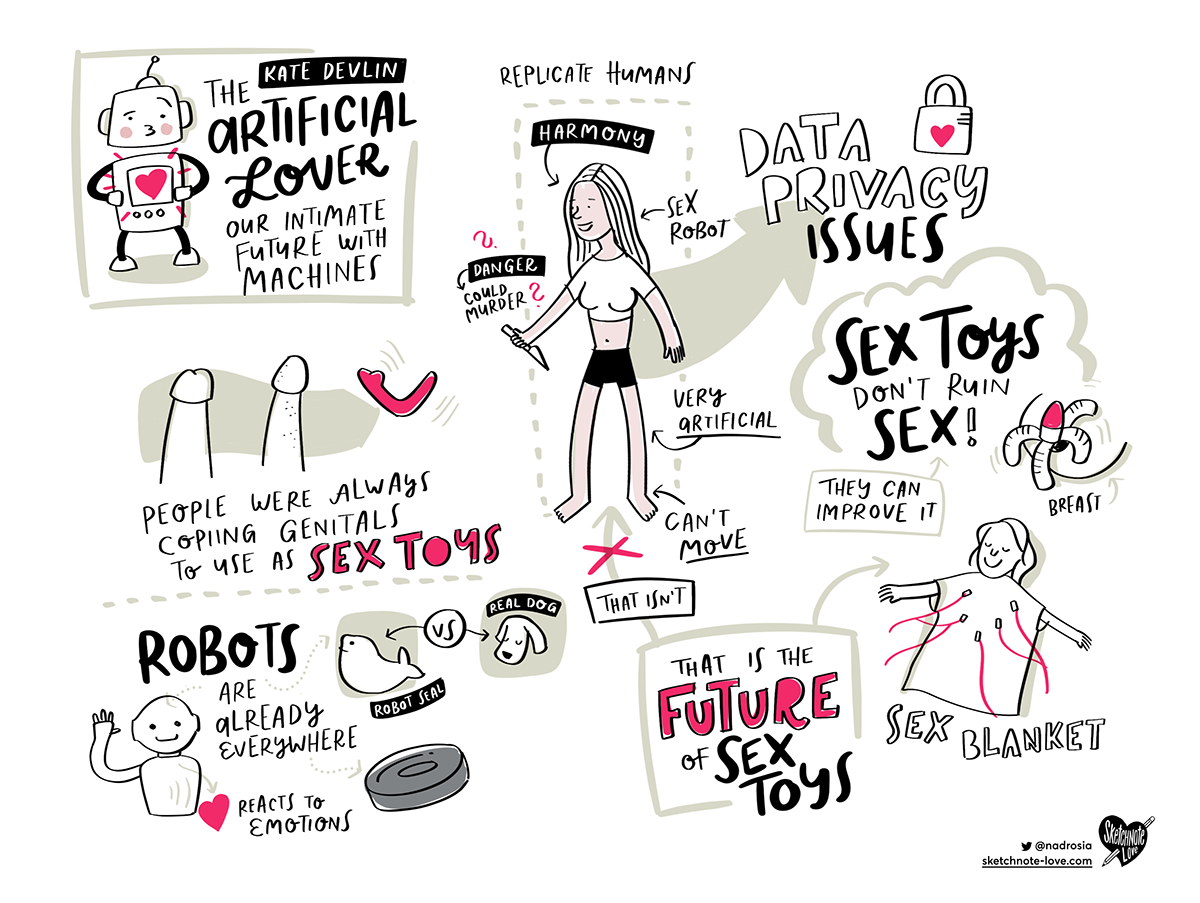 KATE DEVLIN
THE
ARTIFICIAL
LOVER
OUR INTIMATE
FUTURE WITH
MACHINES
REPLICATE HUMANS
HARMONY
SEX
ROBOT
?
DANGER
COULD
MURDER?
VERY
ARTIFICIAL
CAN'T
MOVE
DATA
PRIVACY
ISSUES
SEX TOYS
DON'T RUIN
SEX!
THEY CAN
IMPROVE IT
BREAST
PEOPLE WERE ALWAYS
COPIING GENITALS
TO USE AS SEX TOYS
ROBOTS
ARE
ALREADY
EVERYWHERE
REACTS TO
EMOTIONS
VS
REAL DOG
ROBOT SEAL
THAT ISN'T
THAT IS THE
FUTURE
OF SEX
TOYS
SEX BLANKET
@nadrosia
sketchnote-love.com
SKETCHNOTE
LOVE